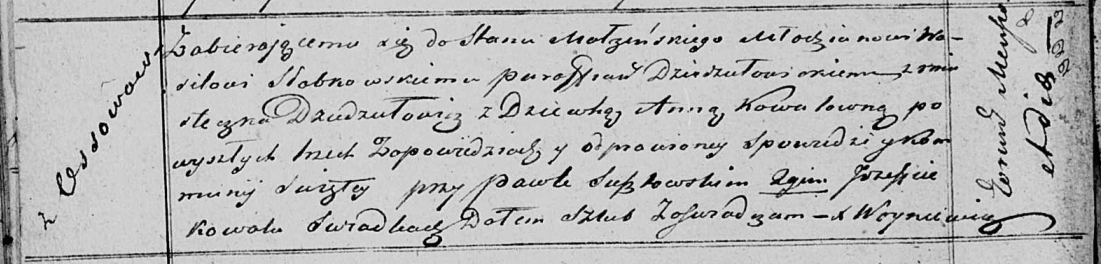 z Ossowa
Zabierającemu się do Stanu Małżeńskiego Młodzianowi Wa-
silowi Słabkowskiemu paraffian Dziedziłowskiemu z mia
steczka Dziedziłowicz z Dziewką Anną Kowalowną po
wyszłych trzech Zapowiedziach y odprawioney Spowiedzi y kom
munij Swiętey przy Pawle Suszkowskim 2gim Jozefie
Kowalu Swiadkach Dałem Szlub Zaswiadczam – X Woyniewicz
Eorund Mensis
et die